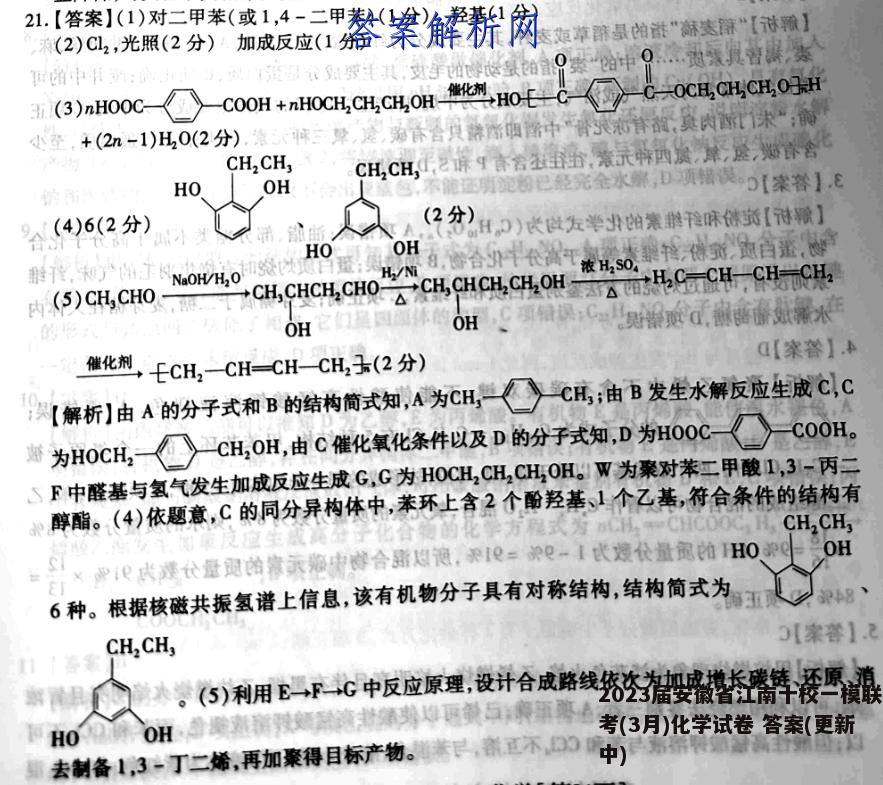 21.【答案】(1)对二甲苯(或1,4-二甲苯)(1分) 羟基(1分)
答案解析网
(2)Cl₂,光照(2分) 加成反应(1分)
(3)nHOOC— —COOH+nHOCH₂CH₂CH₂OH 催化剂 HO[C(=O)— —C(=O)—OCH₂CH₂CH₂O]ₙH
+(2n-1)H₂O(2分)
(4)6(2分) CH₂CH₃ HO OH 、 CH₂CH₃ HO OH (2分)
(5)CH₃CHO NaOH/H₂O CH₃CHCH₂CHO OH H₂/Ni △ CH₃CHCH₂CH₂OH OH 浓H₂SO₄ △ H₂C=CH—CH=CH₂
催化剂 [CH₂—CH=CH—CH₂]ₙ(2分)
【解析】由A的分子式和B的结构简式知,A为CH₃— —CH₃;由B发生水解反应生成C,C
为HOCH₂— —CH₂OH,由C催化氧化条件以及D的分子式知,D为HOOC— —COOH。
F中醛基与氢气发生加成反应生成G,G为HOCH₂CH₂CH₂OH。W为聚对苯二甲酸1,3-丙二
醇酯。(4)依题意,C的同分异构体中,苯环上含2个酚羟基、1个乙基,符合条件的结构有
6种。根据核磁共振氢谱上信息,该有机物分子具有对称结构,结构简式为 CH₂CH₃ HO OH 、
CH₂CH₃ HO OH 。(5)利用E→F→G中反应原理,设计合成路线依次为加成增长碳链、还原、消
去制备1,3-丁二烯,再加聚得目标产物。
2023届安徽省江南十校一模联
考(3月)化学试卷 答案(更新
中)